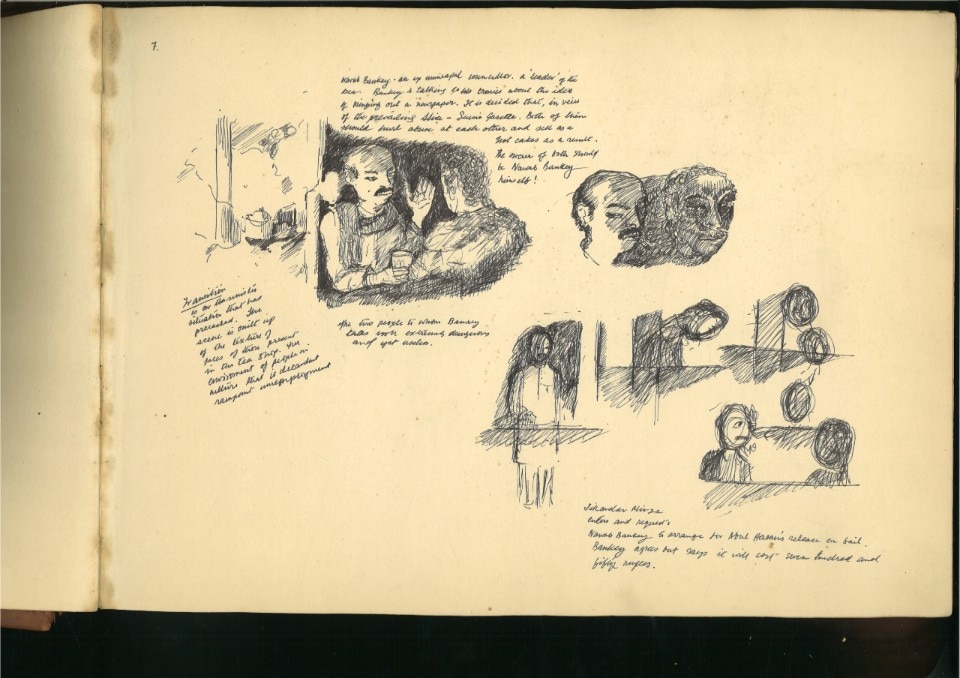 7.
Nawab Bankey - an ex municipal councillor. a 'leader' of the
area. Bankey is talking to his cronies about the idea
of bringing out a newspaper. It is decided that, in view
of the prevailing Shia - Sunni both of them
should hurl abuse at each other and sell as a
hot cakes as a result.
The owner of both should
be Nawab Bankey
himself!
Transition
is on
situation that has
preceeded. The
scene is built up
of the texture of
faces of those present
in the tea shop. An
environment of people in
milieu that is decadent
rampant unemployment
The two people to whom Bankey
talks look extremely dangerous
and yet
Sikandar Mirza
enters and requests
Nawab Bankey to arrange for Abul Hassan's release on bail.
Bankey agrees but says it will cost seven hundred and
fifty rupees.